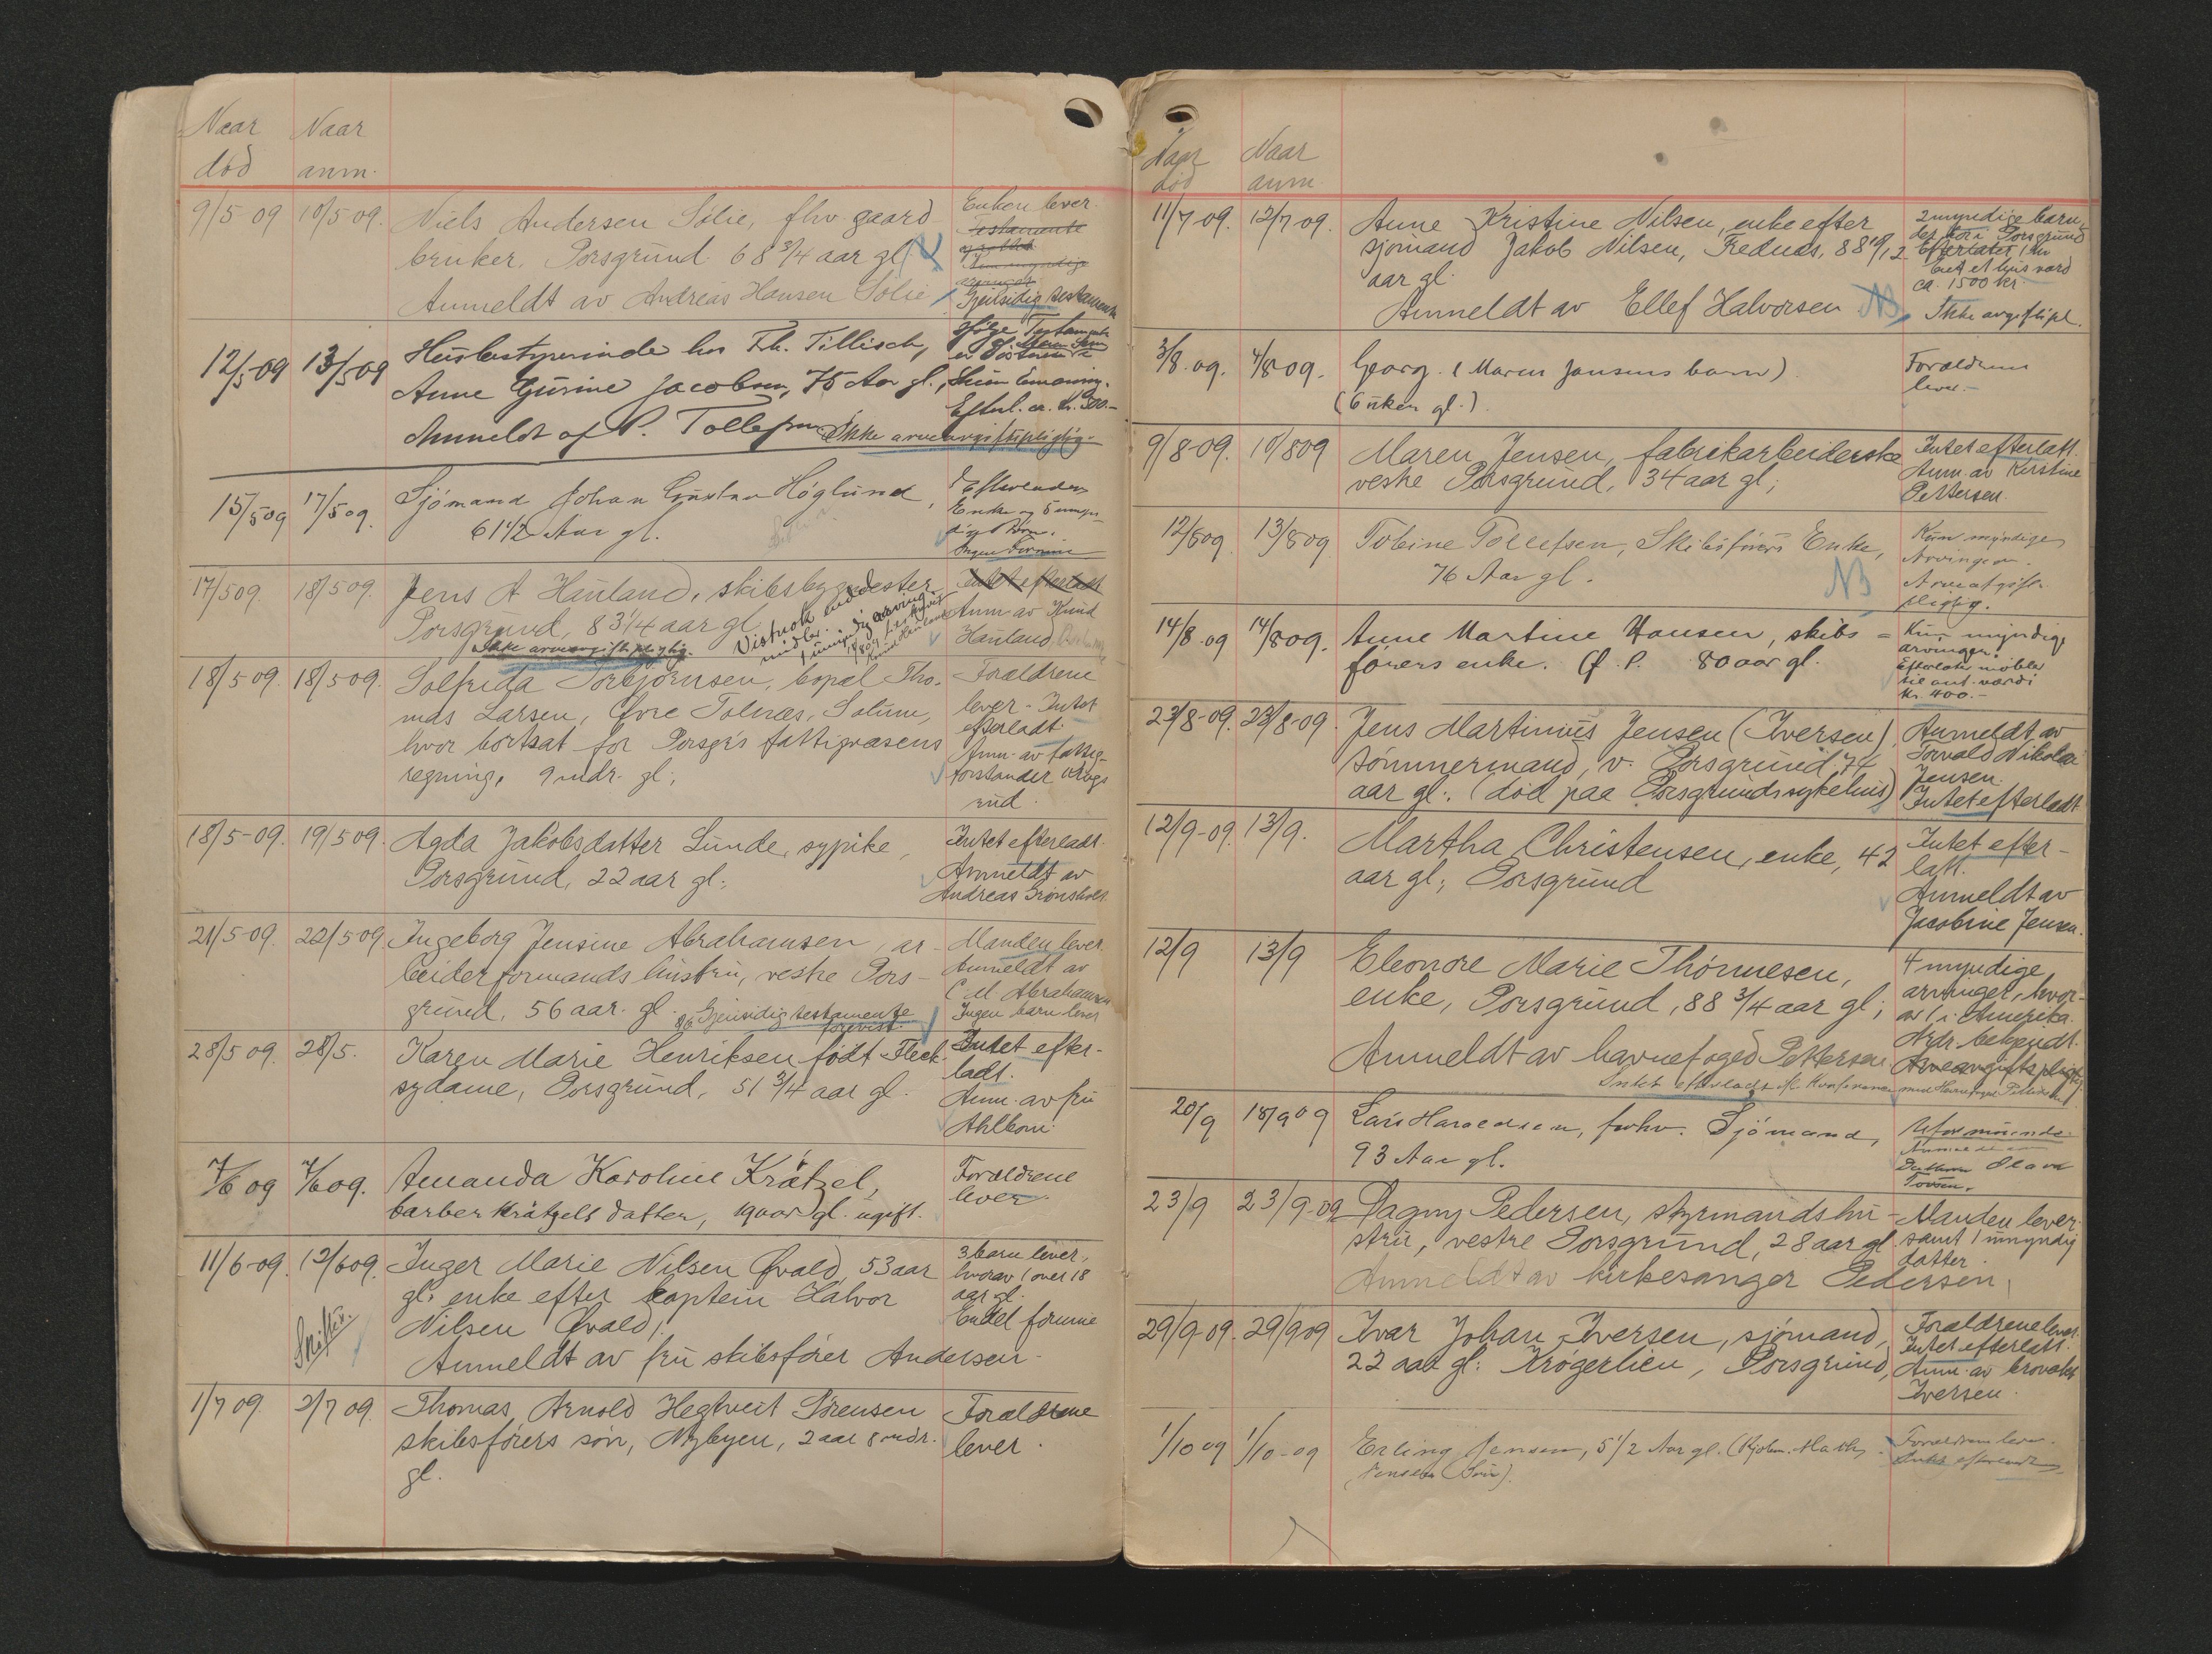 Naar død
Naar anm.
9/5 09
10/5 09.
Niels Andersen Sølie, fhv. gaard
bruker, Porsgrund 68 3/4 aar gl.
Anmeldt av Andreas Hansen Sølie
Enken lever.
Testamente
Gjensidig testamente
12/5-09
13/5 09
Husbestyrerinde hos Fh. Tillisch,
Anne Gurine Jacobsen, 75 Aar gl.,
Anmeldt af P. Tollefsen
Ikke arveavgiftspligtig.
Ifølge Testamente
Efterl. ca. kr. 300.-
15/5 09
17/5 09.
Sjømand Johan Gustav Höglund,
61 1/2 Aar gl.
Efterlader
Enke og 5 umyn-
dige Børn.
Ingen Formue
17/5 09.
18/5 09.
Jens A Hauland, skibsbygmester
Porsgrund, 83 1/4 aar gl.
Ikke arveavgiftspligtig.
Vistnok endel
midler.
Intet efterladt
Anm av Knud
Hauland
18/5 09.
18/5 09.
Solfrida Torbjørnsen, bopæl Tho-
mas Larsen, Øvre Tolnæs, Solum,
hvor bortsat for Porsgr's fattigvæsens
regning, 9 mdr. gl.;
Forældrene
lever - Intet
efterladt
Anm. av fattig-
forstander
rud.
18/5-09.
19/5 09.
Agda Jakobsdatter Lunde, sypike,
Porsgrund, 22 aar gl.;
Intet efterladt.
Anmeldt av
Andreas Grønsholt.
21/5-09.
22/5 09.
Ingeborg Jensine Abrahamsen, ar-
beiderformands hustru, vestre Pors-
grund, 56 aar. gl.
Gjensidig testamente
forevist.
Manden lever.
Anmeldt av
C. M. Abrahamsen
Ingen barn lever
28/5 09.
28/5.
Karen Marie Henriksen født Fleck.
sydame, Porsgrund, 51 3/4 aar gl.
Intet efter-
ladt.
Anm. av fru
Ahlbom.
7/6 09
7/6 09.
Amanda Karoline Krätzel,
barber Krätzels datter, 19 aar gl. ugift.
Forældrene
lever.
11/6-09.
12/6 09.
Skifter.
Inger Marie Nilsen Øvald, 53 aar
gl. enke efter kaptein Halvor
Nilsen Øvald;
Anmeldt av fru skibsfører Andersen.
3 barn lever,
hvorav 1 over 18
aar gl.
Endel formue
1/7 09
2/7 09.
Thomas Arnold Hegtveit Sørensen
skibsførers søn, Nybyen, 2 aar 8 mdr.
gl.
Forældrene
lever.
Naar død
Naar anm.
11/7 09.
12/7 09.
Anne Kristine Nilsen, enke efter
sjømand Jakob Nilsen, Frednes, 88 10/12
aar gl.
Anmeldt av Ellef Halvorsen NB
2 myndige barn,
der bor i Porsgrund
Efterlater
et hus værd
ca. 1500 kr.
Ikke avgiftspl.
3/8. 09.
4/8 09.
Georg. (Maren Jansens barn).
(6 uker gl.).
Forældrene
lever.-
9/8-09.
10/8 09
Maren Jensen, fabrikarbeiderske
vestre Porsgrund, 34 aar gl;
Intet efterlatt.
Anm. av Kirstine
Pettersen.
12/8 09
13/8 09
Tobine Tollefsen, Skibsførers Enke,
76 Aar gl.
NB
Kun myndige
Arvinger.
Arveavgifts-
pligtig.
14/8 09
14/8 09.
Anne Martine Hansen, skibs=
førers enke. Ø. P. 80 aar gl.
Kun myndige
arvinger.
Efterlater møbler
til ant. værdi
kr. 400.-
23/8-09.
23/8-09.
Jens Martinius Jensen (Iversen),
tømmermand, v. Porsgrund 74
aar gl. (død paa Porsgrunds sykehus)
Anmeldt av
Torvald Nikolai
Jensen.
Intet efterladt
12/9-09.
13/9.
Martha Christensen, enke, 42
aar gl; Porsgrund
Intet efter-
latt.
Anmeldt av
Jacobine Jensen.
12/9
13/9
Eleonore Marie Thønnesen,
enke, Porsgrund, 88 3/4 aar gl;
Anmeldt av havnefoged Pettersen
Intet efterladt
4 myndige
arvinger, hvor-
av 1 i Amerika.
Arveavgiftspligtig
20/9
18/9 09
Lars Haraldsen, forhv. Sjømand,
93 Aar gl.
Uformuende
Datteren Olava
23/9
23/9-09
Dagny Pedersen, styrmandshu-
stru, vestre Porsgrund, 28 aar gl
Anmeldt av kirkesanger Pedersen,
Manden lever
samt 1 umyndig
datter.
29/9-09.
29/9 09
Ivar Johan Iversen, sjømand,
22 aar gl. Krøgerlien, Porsgrund,
Forældrene lever.
Intet efterlatt.
Anm. av
Iversen.
1/10 09
1/10-09
Erling Jensen, 5 1/2 Aar gl. (Kjøbm. Math.
Jensens Søn).
Forældrene lever.
Intet efterladt